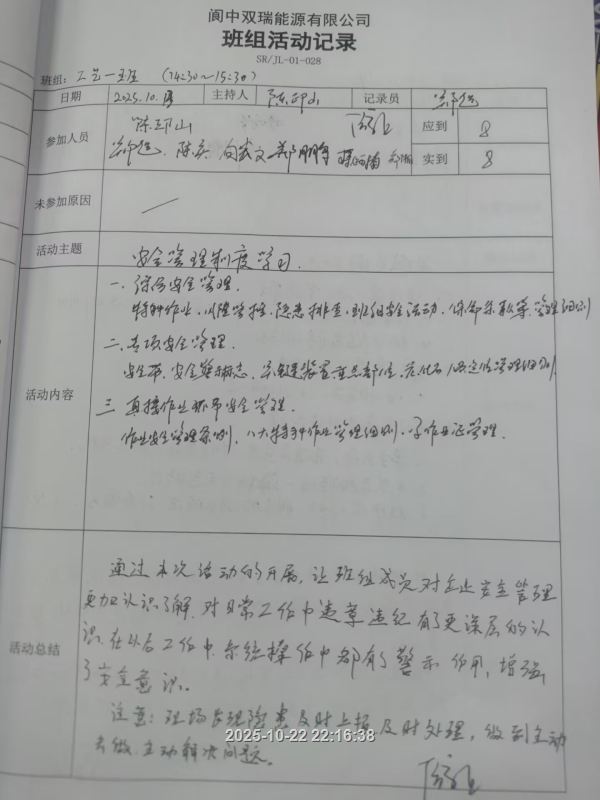 阆中双瑞能源有限公司
班组活动记录
SR/JL-01-028
班组：工艺一班 （14:30～15:30）
日期 2025.10. 主持人 陈邛山 记录员
参加人员 陈邛山 应到 8
陈 向 文 郑鹏 实到 8
未参加原因
活动主题 安全管理制度学习.
活动内容
一. 综合安全管理.
特种作业, 风险管控, 隐患排查, 班组安全活动, 管理细则
二. 专项安全管理.
安全带、安全警示标志、关键装置重点部位、 管理细则
三 直接作业环节安全管理.
作业安全管理条例, 八大特种作业管理细则、 作业证管理.
活动总结
通过本次活动的开展, 让班组成员对企业安全管理
更加认识了解. 对日常工作中违章违纪有了更深层的认
识. 在以后工作中. 系统操作中都有了警示作用, 增强
了安全意识.
注意: 现场发现隐患及时上报及时处理, 做到主动
去做. 主动解决问题.
2025-10-22 22:16:38